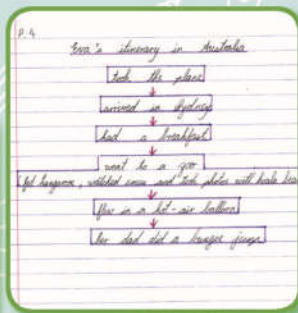 P. 4
Eva's itinerary in Australia
took the plane
arrived in Sydney
had a breakfast
went to a zoo
fed kangaroos, watched emus and took photos with koala bears
flew in a hot-air balloon
her dad did a bungee jump